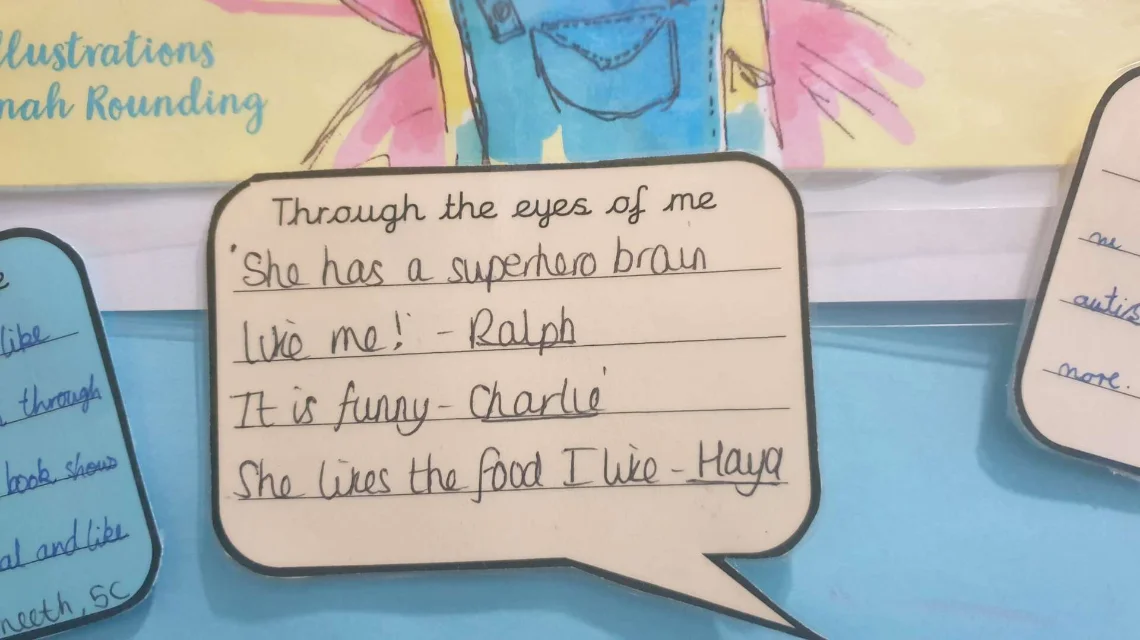 llustrations
nah Rounding
Through the eyes of me
'She has a superhero brain
like me! - Ralph
It is funny - Charlie'
She likes the food I like - Haya
like
through
book shows
al and like
neeth, 5C
ne
autis
more.